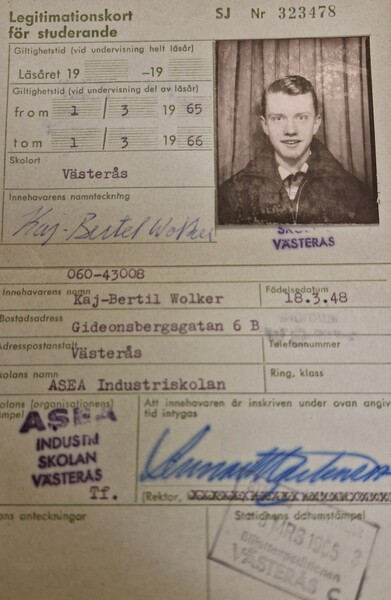 Legitimationskort
för studerande
SJ Nr 323478
Giltighetstid (vid undervisning helt läsår)
Läsåret 19 –19
Giltighetstid (vid undervisning del av läsår)
from 1 / 3 1965
tom 1 / 3 1966
Skolort
Västerås
Innehavarens namnteckning
Kaj-Bertil Wolker
VÄSTERÅS
060-43008
Innehavarens namn
Kaj-Bertil Wolker
Födelsedatum
18.3.48
Bostadsadress
Gideonsbergsgatan 6 B
Adresspostanstalt
Västerås
Telefonnummer
kolans namn
ASEA Industriskolan
Ring, klass
kolans (organisationens)
mpel
ASEA
INDUSTRI
SKOLAN
VÄSTERÅS
Tf.
Att innehavaren är inskriven under ovan angiv
tid intygas
(Rektor,
ans anteckningar
Stationens datumstämpel
MRS 1965
Biljettexpeditionen
VÄSTERÅS C